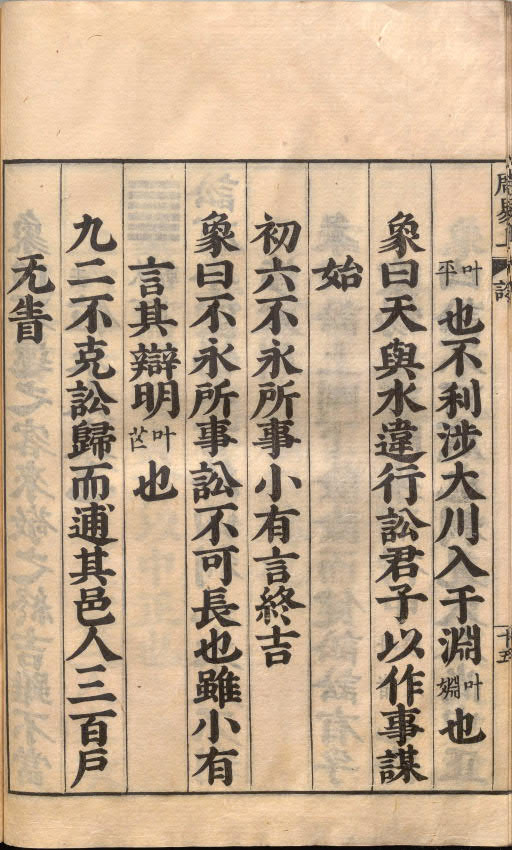 叶平也不利涉大川入于淵叶㶜也
象曰天與水違行訟君子以作事謀
始
初六不永所事小有言終吉
象曰不永所事訟不可長也雖小有
言其辯明叶芒也
九二不克訟歸而逋其邑人三百戶
无眚